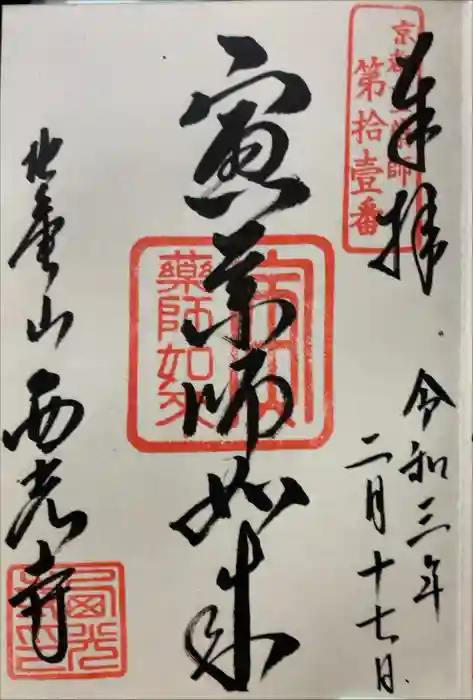 奉拝
京都十二薬師
第拾壹番
令和三年
二月十七日
寅薬師如来
寅薬師如来
北亀山
西光寺